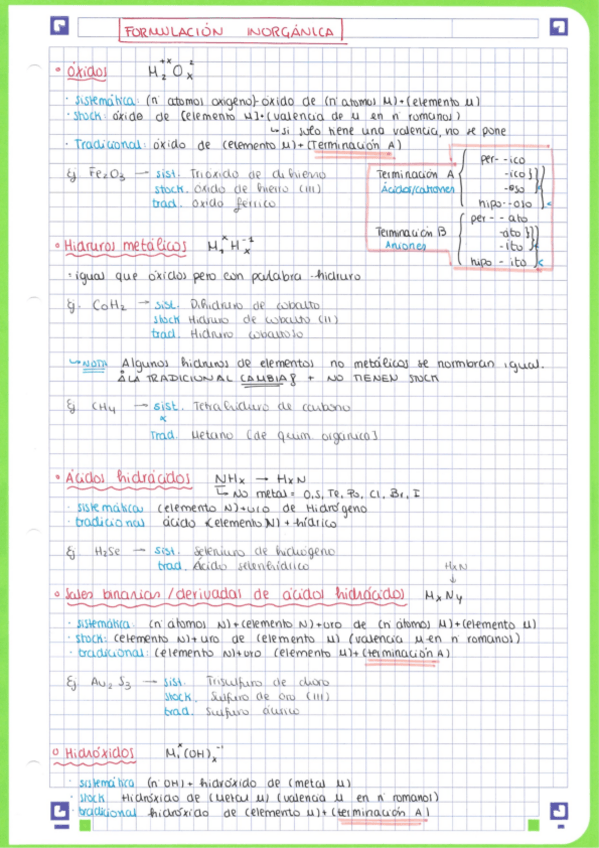 FORMULACIÓN INORGÁNICA
• Óxidos M₂⁺ˣ Oₓ²
· Sistemática: (nº átomos oxígeno)- óxido de (nº átomos M)+(elemento M)
· Stock: óxido de (elemento M)+(valencia de M en nº romanos)
↳ si solo tiene una valencia, no se pone
· Tradicional: óxido de (elemento M)+(Terminación A)
Ej Fe₂O₃ → sist. Trióxido de dihierro
stock. Óxido de hierro (III)
trad. Óxido férrico
Terminación A
Ácidos/cationes
per- -ico
-ico
-oso
hipo- -oso
Terminación B
Aniones
per - - ato
-ato
-ito
hipo - ito
• Hidruros metálicos M₁ˣ Hₓ⁻¹
= igual que óxidos pero con palabra -hidruro
Ej. CoH₂ → sist. Dihidruro de cobalto
stock Hidruro de cobalto (II)
trad. Hidruro cobaltoso
↳ NOTA Algunos hidruros de elementos no metálicos se nombran igual.
¡LA TRADICIONAL CAMBIA! + NO TIENEN STOCK
Ej CH₄ → sist. Tetrahidruro de carbono
Trad. Metano (de quim. orgánica)
• Ácidos hidrácidos NHₓ → HₓN
↳ No metal = O, S, Te, Po, Cl, Br, I
· sistemática (elemento N)+uro de Hidrógeno
· tradicional ácido (elemento N) + hídrico
Ej H₂Se → sist. Seleniuro de hidrógeno
trad. Ácido selenhídrico
HₓN
↓
• Sales binarias / derivadas de ácidos hidrácidos MₓNᵧ
· sistemática: (nº átomos N)+(elemento N)+uro de (nº átomos M)+(elemento M)
· stock: (elemento N)+uro de (elemento M) (valencia M en nº romanos)
· tradicional: (elemento N)+uro (elemento M)+(terminación A)
Ej Au₂S₃ → sist. Trisulfuro de dioro
stock. Sulfuro de oro (III)
trad. Sulfuro áurico
• Hidróxidos M₁ˣ(OH)ₓ⁻¹
· sistemática (nº OH)+ hidróxido de (metal M)
· stock Hidróxido de (Metal M) (valencia M en nº romanos)
· tradicional hidróxido de (elemento M)+(terminación A)